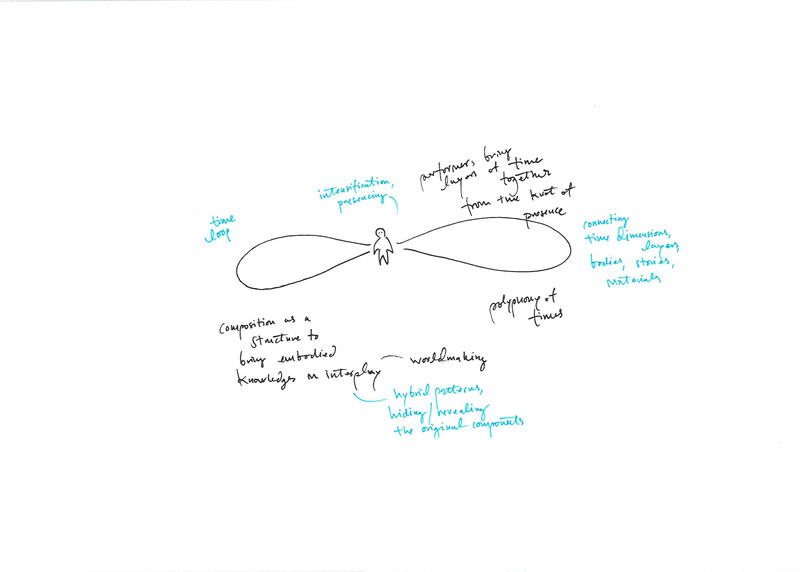 performers bring
layers of time
together
from the knot of
presence
intensification,
presencing
time
loop
connecting
time dimensions,
layers,
bodies, stories,
materials
polyphony of
times
composition as a
structure to
bring embodied
knowledges in interplay
worldmaking
hybrid patterns,
hiding/revealing
the original components